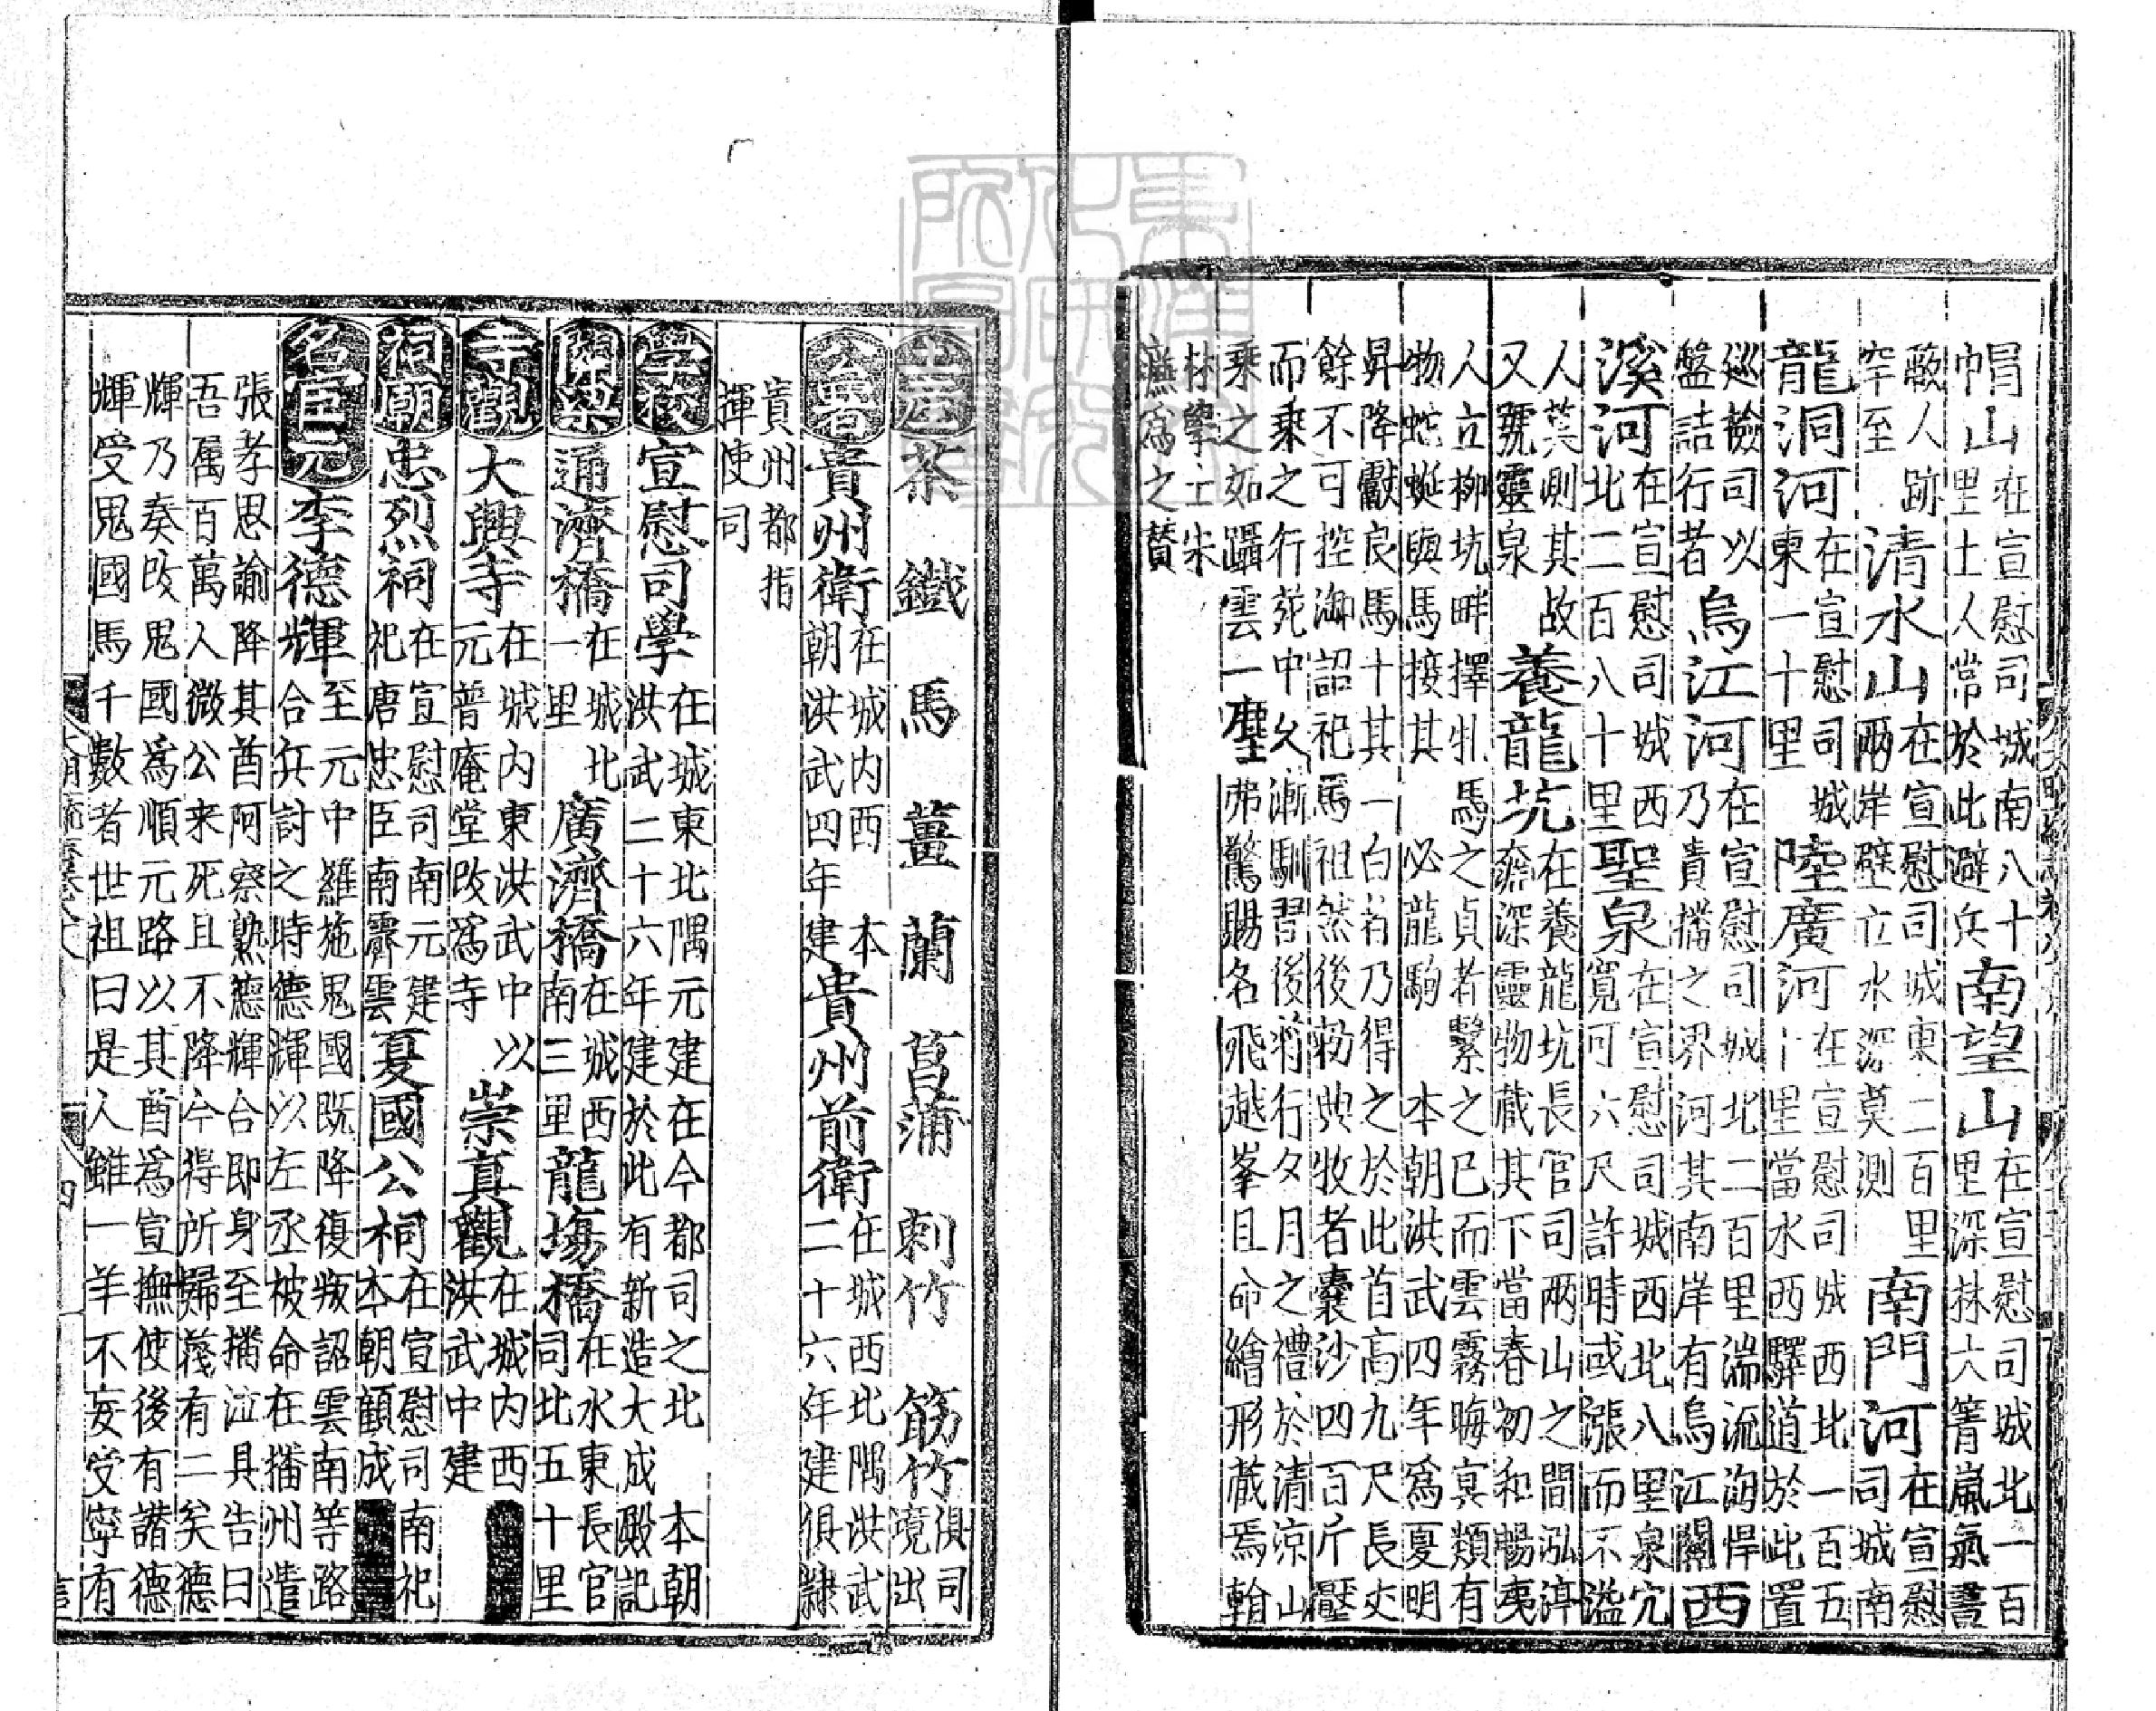 帽山在宣慰司城南八十里土人常於此避兵南望山在宣慰司城北一百里深林大箐嵐氣晝
蔽人跡罕至清水山在宣慰司城東二百里兩岸壁立水深莫測南門河在宣慰司城南
龍洞河在宣慰司城東一十里陸廣河在宣慰司城西北一百五十里當水西驛道於此置
巡檢司以盤詰行者烏江河在宣慰司城北二百里湍流洶悍乃貴播之界河其南岸有烏江關西
溪河在宣慰司城西北二百八十里聖泉在宣慰司城西北八里泉穴寬可六尺許時或漲而不溢
人莫測其故又號靈泉養龍坑在養龍坑長官司兩山之間泓渟深靈物藏其下當春初和暢夷
人立柳坑畔擇牝馬之貞者繫之已而雲霧晦冥類有物蛇蜒與馬接其必龍駒本朝洪武四年為夏明
昇降獻良馬十其一白者乃得之於此首高九尺長丈餘不可控御詔祀馬祖然後敕典牧者囊沙四百斤壓
而乘之行苑中久漸馴習後將行夕月之禮於清涼山乘之如躡雲一塵弗驚賜名飛越峯且命繪形藏焉翰
林學士宋濂為之贊
土産茶 鐵 馬 薑 蘭 菖蒲 刺竹 筯竹俱司境出
公署貴州衛在城内西本朝洪武四年建貴州前衛在城西北隅洪武二十六年建俱隸
貴州都指揮使司
學校宣慰司學在城東北隅元建在今都司之北本朝洪武二十六年建於此有新造大成殿記
關梁通濟橋在城北一里廣濟橋在城西南三里龍塲橋在水東長官司北五十里
寺觀大興寺在城内東洪武中以元普庵堂改為寺崇真觀在城内西洪武中建
祠廟忠烈祠在宣慰司南元建祀唐忠臣南霽雲夏國公祠在宣慰司南祀本朝顧成
名宦元李德輝至元中羅施鬼國既降復叛詔雲南等路合兵討之時德輝以左丞被命在播州遣
張孝思諭降其酋阿察熟德輝合即身至播泣具告曰吾属百萬人微公来死且不降今得所歸蔑有二矣德
輝乃奏改鬼國為順元路以其酋為宣撫使後有譖德輝受鬼國馬千數者世祖曰是人雖一羊不妄受寧有